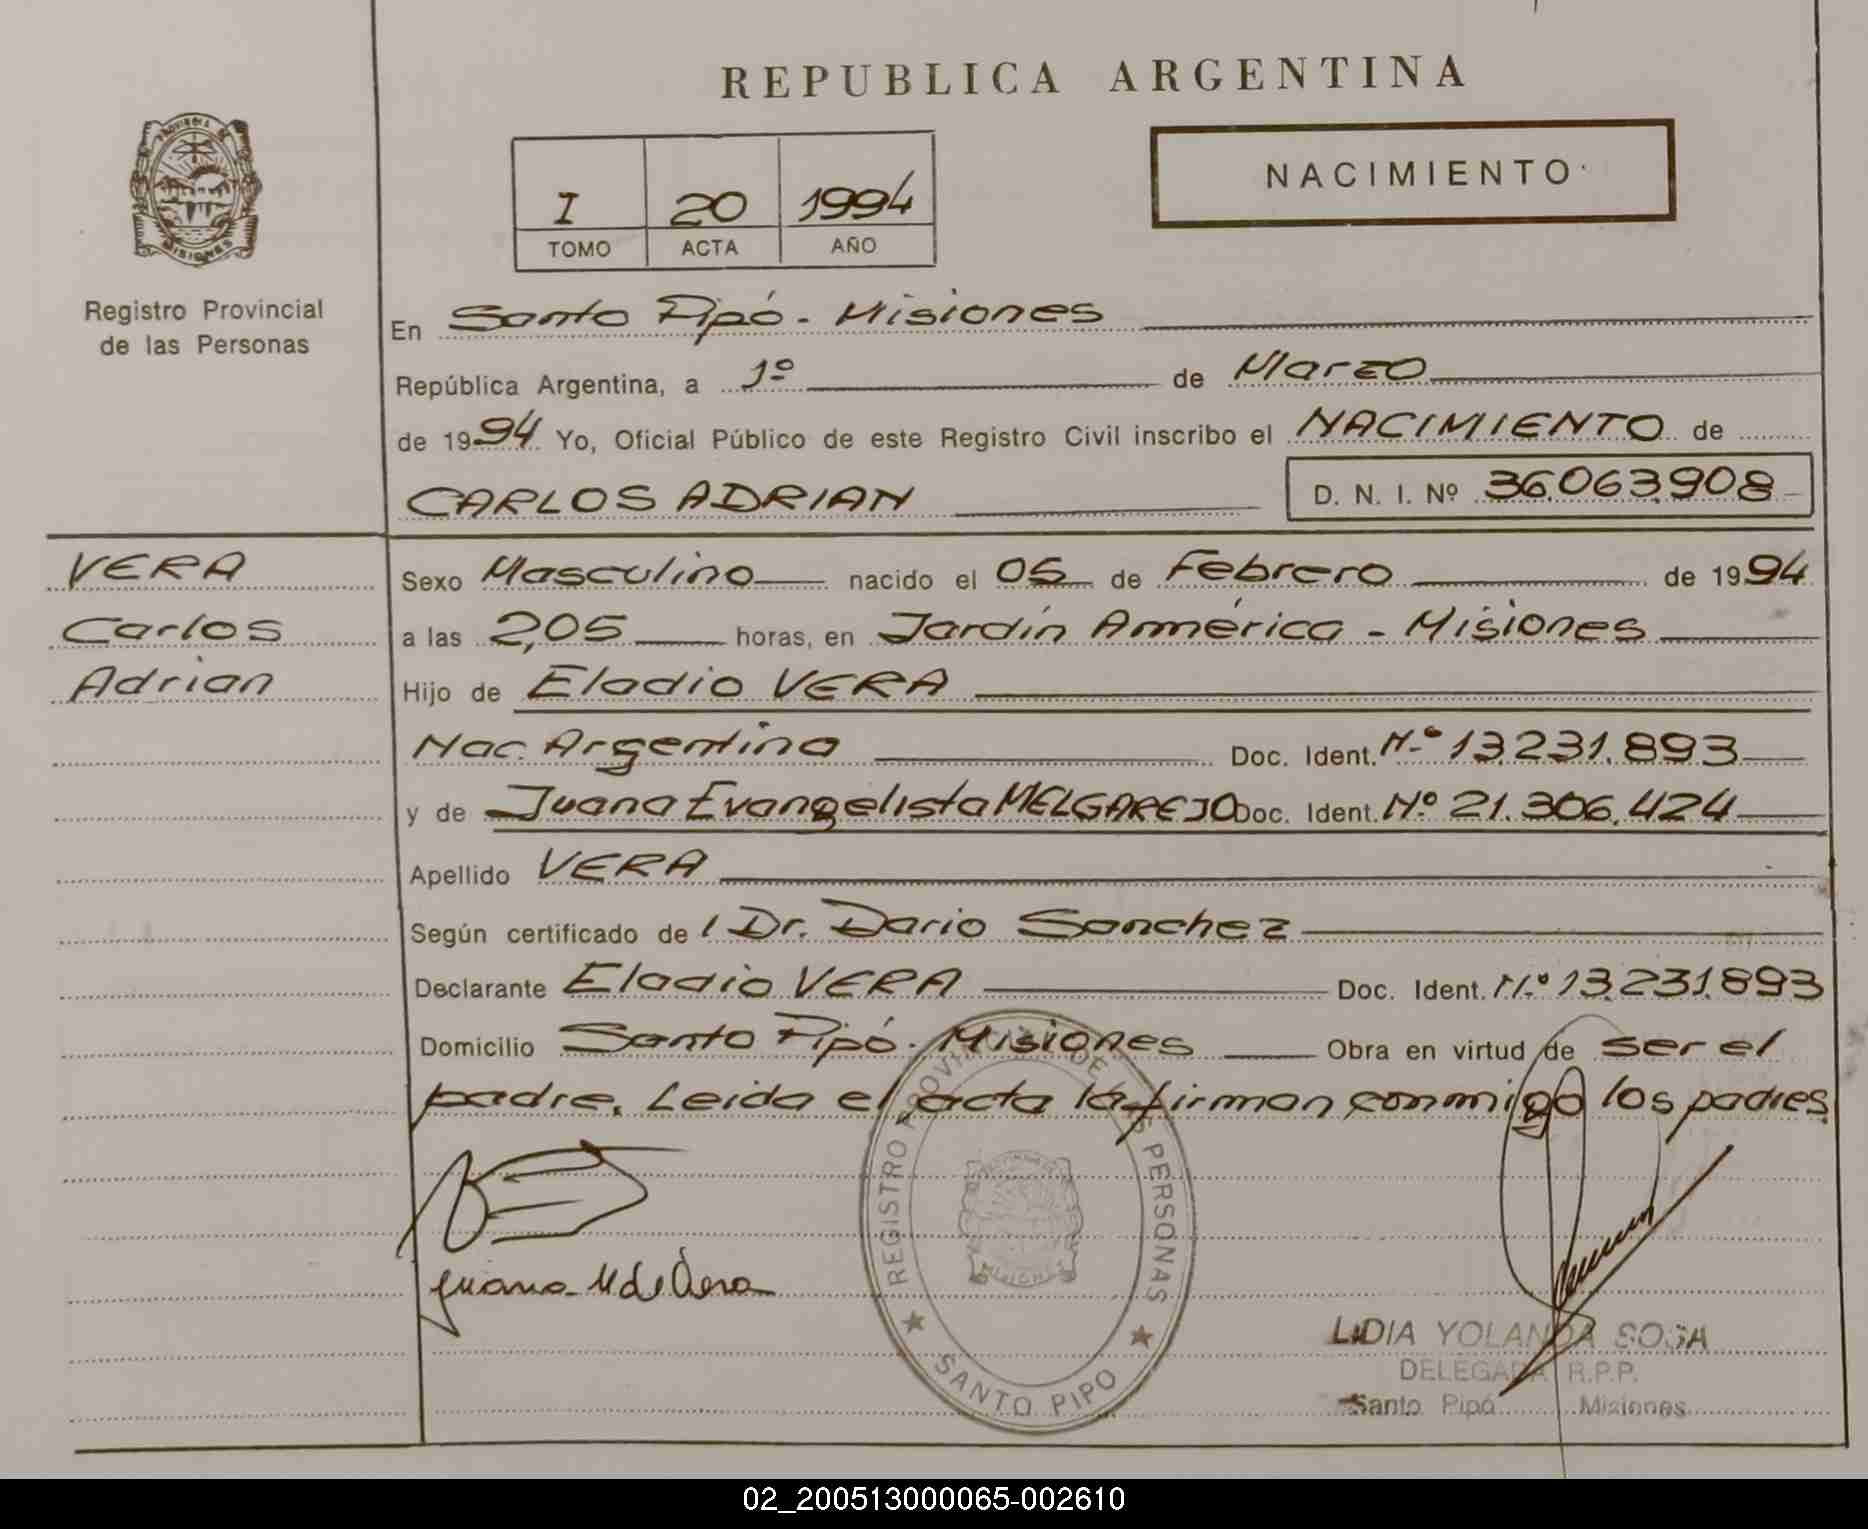 REPUBLICA ARGENTINA
PROVINCIA DE
MISIONES
Registro Provincial
de las Personas
I 20 1994
TOMO ACTA AÑO
NACIMIENTO
En Santo Pipó - Misiones
República Argentina, a 1º de Marzo
de 1994 Yo, Oficial Público de este Registro Civil inscribo el NACIMIENTO de
CARLOS ADRIAN D. N. I. Nº 36.063.908
VERA
Carlos
Adrian
Sexo Masculino nacido el 05 de Febrero de 1994
a las 2,05 horas, en Jardín América - Misiones
Hijo de Eladio VERA
Nac. Argentina Doc. Ident. Nº 13.231.893
y de Juana Evangelista MELGAREJO Doc. Ident. Nº 21.306.424
Apellido VERA
Según certificado del Dr. Dario Sanchez
Declarante Eladio VERA Doc. Ident. Nº 13.231.893
Domicilio Santo Pipó - Misiones Obra en virtud de ser el
padre. Leida el acta la firman conmigo los padres
Juana M de Vera
REGISTRO PROVINCIAL DE LAS PERSONAS
MISIONES
SANTO PIPO
LIDIA YOLANDA SOSA
DELEGADA R.P.P.
Santo Pipó Misiones
02_200513000065-002610